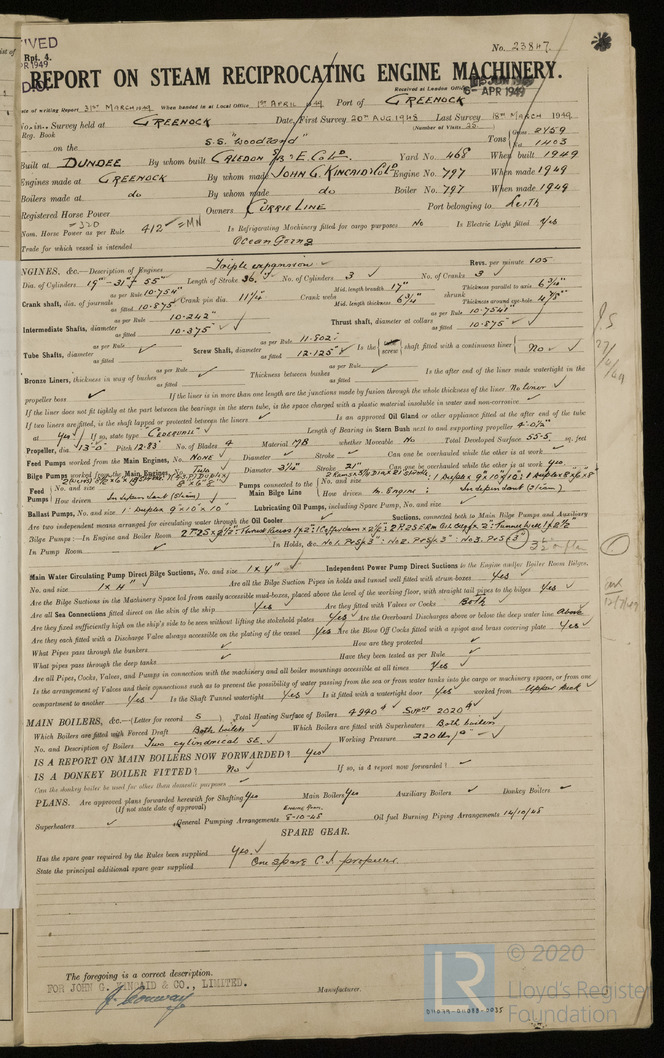 IVED
Rpt. 4.
PR 1949
No. 23847.
REPORT ON STEAM RECIPROCATING ENGINE MACHINERY.
Received at London Office 6- APR 1949
Date of writing Report 31st MARCH 1949 When handed in at Local Office 1st APRIL 1949 Port of GREENOCK
No. in Survey held at GREENOCK Date, First Survey 20th AUG 1948 Last Survey 18th MARCH 1949
Reg. Book (Number of Visits
on the S.S. "Woodland" Tons Gross 2459
1403
Built at DUNDEE By whom built CALEDON S/B & E. Co Ld. Yard No. 468 When built 1949
Engines made at GREENOCK By whom made JOHN G. KINCAID & Co Ld Engine No. 797 When made 1949
Boilers made at do By whom made do Boiler No. 797 When made 1949
Registered Horse Power Owners CURRIE LINE Port belonging to Leith
Nom. Horse Power as per Rule 412 = MN Is Refrigerating Machinery fitted for cargo purposes No Is Electric Light fitted Yes
Trade for which vessel is intended Ocean Going
ENGINES, &c.—Description of Engines Triple expansion Revs. per minute 105
Dia. of Cylinders 19"-31"& 55" Length of Stroke 36. No. of Cylinders 3 No. of Cranks 3
Crank shaft, dia. of journals as per Rule 10.754" as fitted 10.875 Crank pin dia. 11 1/4 Crank webs Mid. length breadth 17" Mid. length thickness 6 3/4" shrunk Thickness parallel to axis 6 3/4" Thickness around eye-hole 4 7/8"
Intermediate Shafts, diameter as per Rule 10.242" as fitted 10.375 Thrust shaft, diameter at collars as per Rule 10.754" as fitted 10.875
Tube Shafts, diameter as per Rule as fitted Screw Shaft, diameter as per Rule 11.802" as fitted 12.125" Is the screw shaft fitted with a continuous liner No
Bronze Liners, thickness in way of bushes as per Rule as fitted Thickness between bushes as per Rule as fitted Is the after end of the liner made watertight in the
propeller boss If the liner is in more than one length are the junctions made by fusion through the whole thickness of the liner No liner
If the liner does not fit tightly at the part between the bearings in the stern tube, is the space charged with a plastic material insoluble in water and non-corrosive
If two liners are fitted, is the shaft lapped or protected between the liners Is an approved Oil Gland or other appliance fitted at the after end of the tube
shaft Yes If so, state type "CEDERVALL" Length of Bearing in Stern Bush next to and supporting propeller 4'-0 1/2"
Propeller, dia. 13'-0" Pitch 12.83' No. of Blades 4 Material MB whether Moveable No Total Developed Surface 55.5 sq. feet
Feed Pumps worked from the Main Engines, No. NONE Diameter Stroke Can one be overhauled while the other is at work
Bilge Pumps worked from the Main Engines, No. Two Diameter 3 1/2" Stroke 21" Can one be overhauled while the other is at work yes
Feed Pumps No. and size How driven Independant (Steam) Pumps connected to the Main Bilge Line No. and size How driven M. Engine; Independant (Steam)
Ballast Pumps, No. and size 1 Duplex 9"x10"x10" Lubricating Oil Pumps, including Spare Pump, No. and size
Are two independent means arranged for circulating water through the Oil Cooler Suctions, connected both to Main Bilge Pumps and Auxiliary
Bilge Pumps:—In Engine and Boiler Room
In Pump Room In Holds, &c. No1. P&S 3": No2. P&S 3": No3. P&S 3"
Main Water Circulating Pump Direct Bilge Suctions, No. and size 1 x 4" Independent Power Pump Direct Suctions to the Engine and/or Boiler Room Bilges.
No. and size 1 x 4" Are all the Bilge Suction Pipes in holds and tunnel well fitted with strum-boxes Yes
Are the Bilge Suctions in the Machinery Space led from easily accessible mud-boxes, placed above the level of the working floor, with straight tail pipes to the bilges Yes
Are all Sea Connections fitted direct on the skin of the ship Yes Are they fitted with Valves or Cocks Both
Are they fixed sufficiently high on the ship's side to be seen without lifting the stokehold plates Yes Are the Overboard Discharges above or below the deep water line Above
Are they each fitted with a Discharge Valve always accessible on the plating of the vessel Yes Are the Blow Off Cocks fitted with a spigot and brass covering plate Yes
What Pipes pass through the bunkers How are they protected
What pipes pass through the deep tanks Have they been tested as per Rule
Are all Pipes, Cocks, Valves, and Pumps in connection with the machinery and all boiler mountings accessible at all times Yes
Is the arrangement of Valves and their connections such as to prevent the possibility of water passing from the sea or from water tanks into the cargo or machinery spaces, or from one
compartment to another Yes Is the Shaft Tunnel watertight Yes Is it fitted with a watertight door Yes worked from Upper Deck
MAIN BOILERS, &c.—(Letter for record S) Total Heating Surface of Boilers 4990 Supht 2020
Which Boilers are fitted with Forced Draft Both boilers Which Boilers are fitted with Superheaters Both boilers
No. and Description of Boilers Two cylindrical SE. Working Pressure 220
IS A REPORT ON MAIN BOILERS NOW FORWARDED? Yes
IS A DONKEY BOILER FITTED? No If so, is a report now forwarded?
Can the donkey boiler be used for other than domestic purposes
PLANS. Are approved plans forwarded herewith for Shafting Yes Main Boilers Yes Auxiliary Boilers Donkey Boilers
(If not state date of approval)
Superheaters General Pumping Arrangements Engine Room 8-10-48 Oil fuel Burning Piping Arrangements 14/10/48
SPARE GEAR.
Has the spare gear required by the Rules been supplied Yes.
State the principal additional spare gear supplied One spare C.I. propeller.
The foregoing is a correct description.
FOR JOHN G. KINCAID & CO., LIMITED.
Manufacturer.
LR
© 2020
Lloyd's Register
Foundation